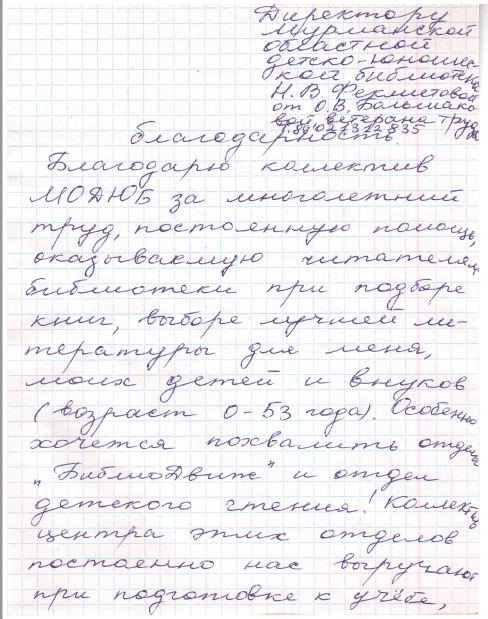 Директору
Мурманской
областной
детско-юношес-
кой библиотеки
Н.В. Феклистовой
от О.В. Большако-
вой ветерана труда
т.89021372835
благодарность.
Благодарю коллектив
МОДЮБ за многолетний
труд, постоянную помощь,
оказываемую читателям
библиотеки при подборе
книг, выборе лучшей ли-
тературы для меня,
моих детей и внуков
(возраст 0-53 года). Особенно
хочется похвалить отделы
"БиблиоДвиж" и отдел
детского чтения! Коллектив
центра этих отделов
постоенно нас выручают
при подготовке к учёбе,